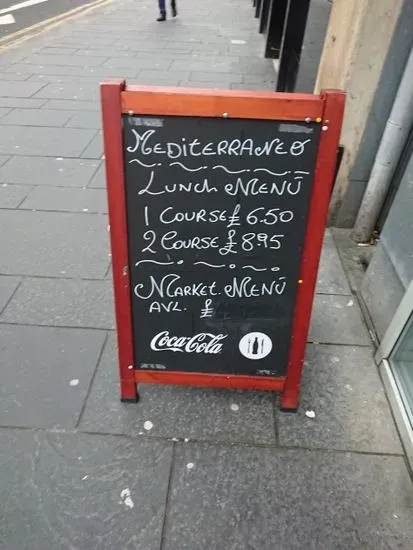 MEDITERRANEO
LUNCH MENÙ
1 COURSE £ 6.50
2 COURSE £ 8.95
MARKET. MENÙ
AVL. £
Coca-Cola